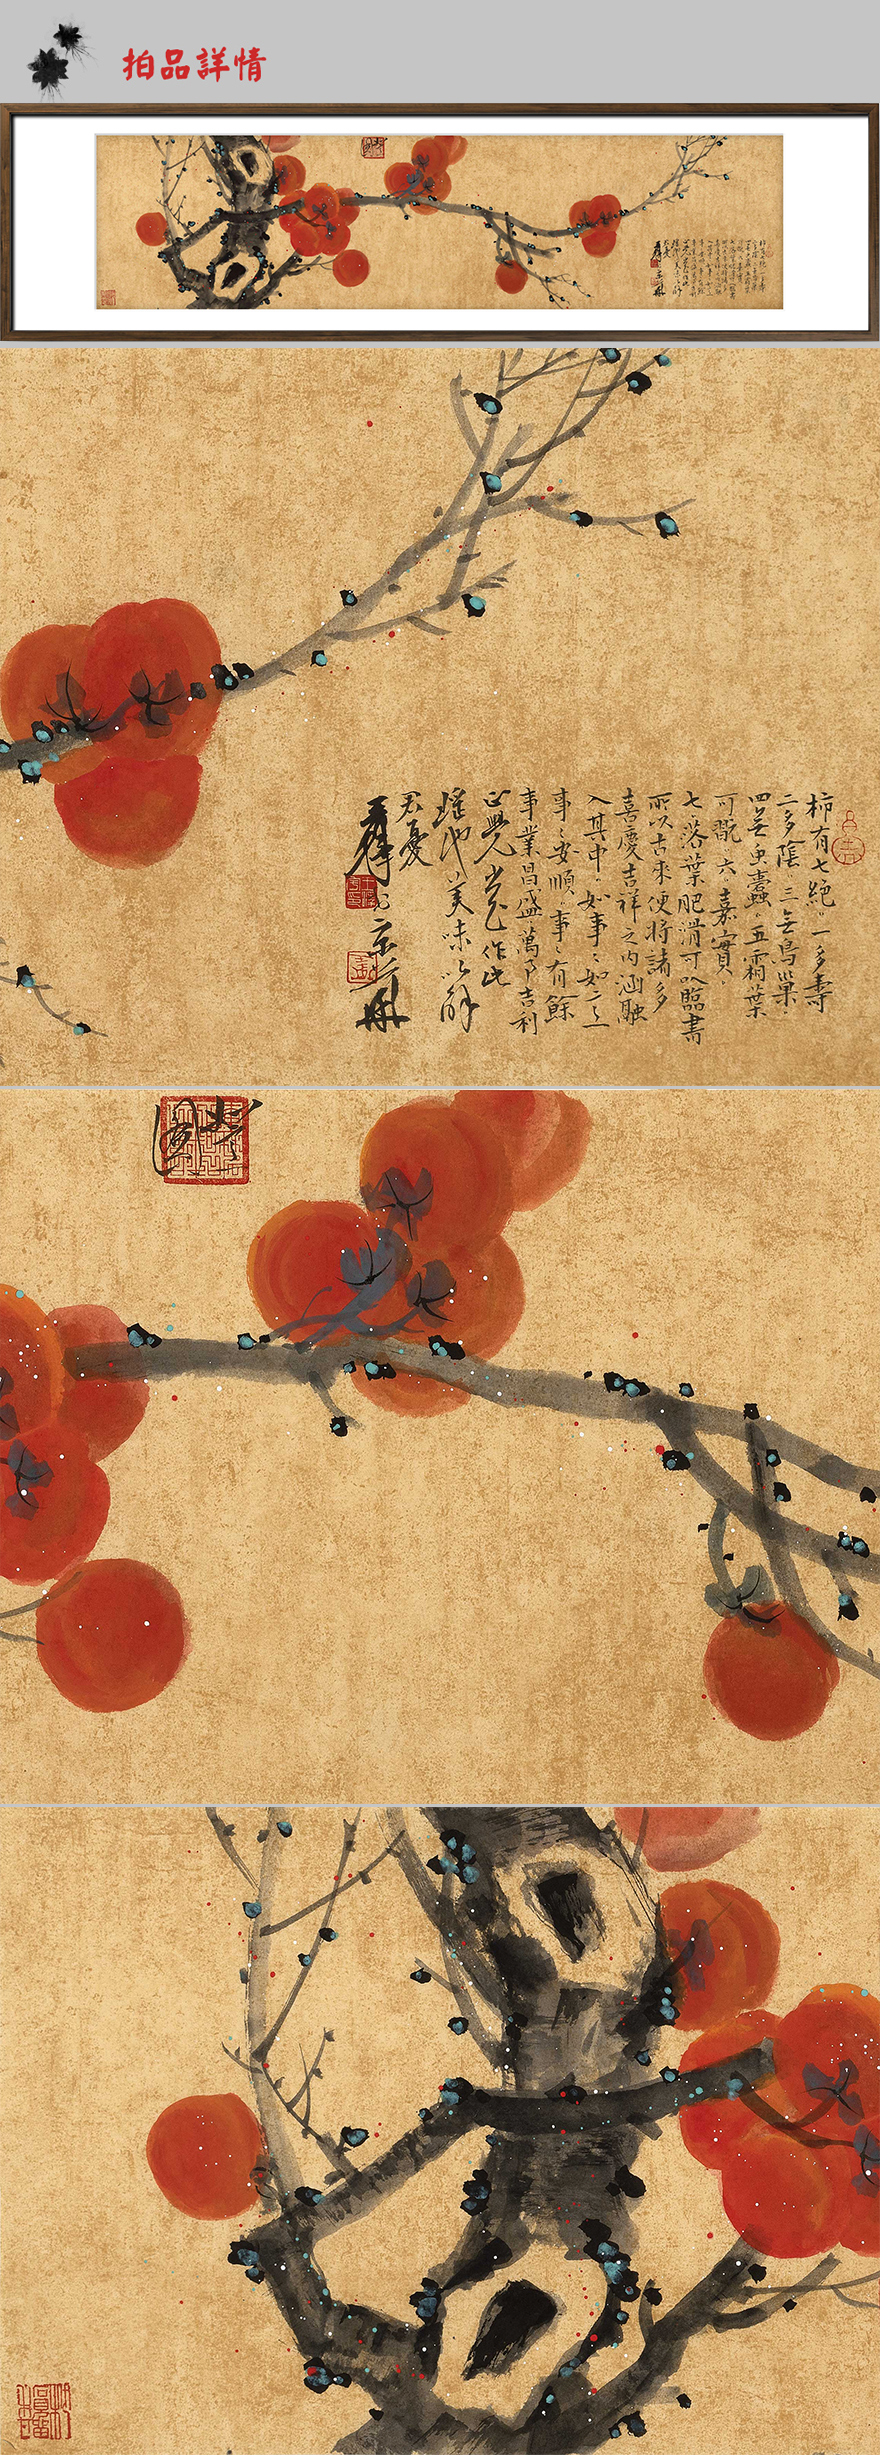 拍品詳情
柿有七絕一多壽
二多蔭三無鳥巢
四無虫蠹五霜葉
可翫六嘉實
七落葉肥滑可以臨書
所以古來便將諸多
喜慶吉祥之內涵融
入其中如事事如意
事事安順事事有餘
事業昌盛萬事吉利
正覺堂作此
瑤池美味以解
君憂